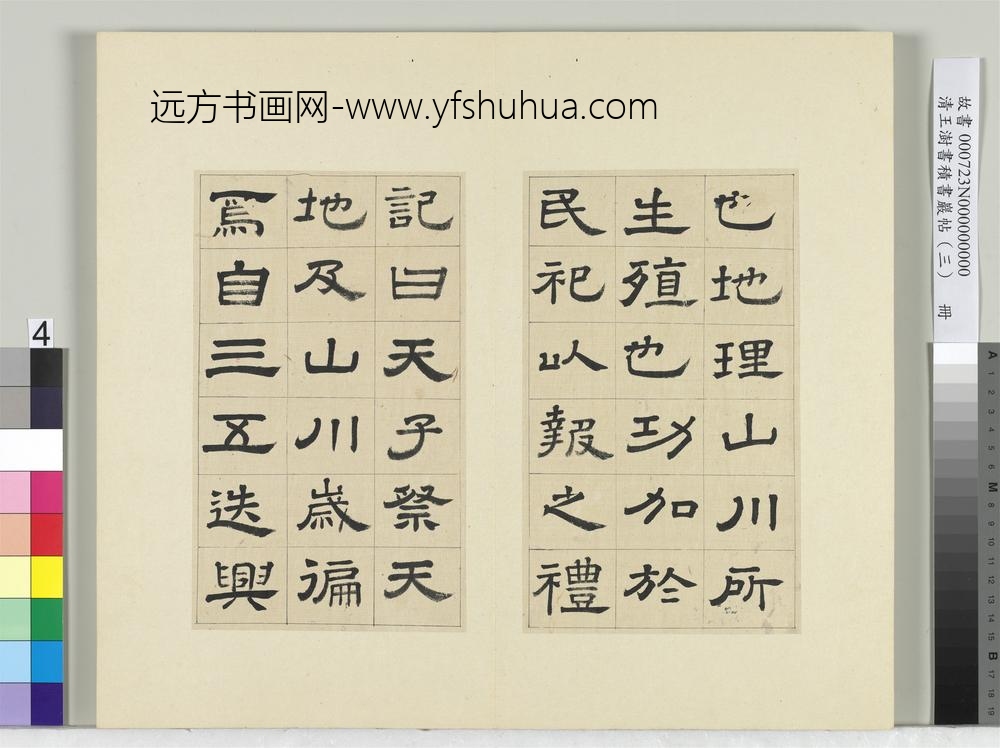 远方书画网-www.yfshuhua.com
也地理山川所
生殖也功加於
民祀以報之禮
記曰天子祭天
地及山川歲徧
焉自三五迭興
故書 000723N000000000
清王澍書積書巖帖（三） 冊
4
A 1 2 3 4 5 6 M 8 9 10 11 12 13 14 15 B 17 18 19